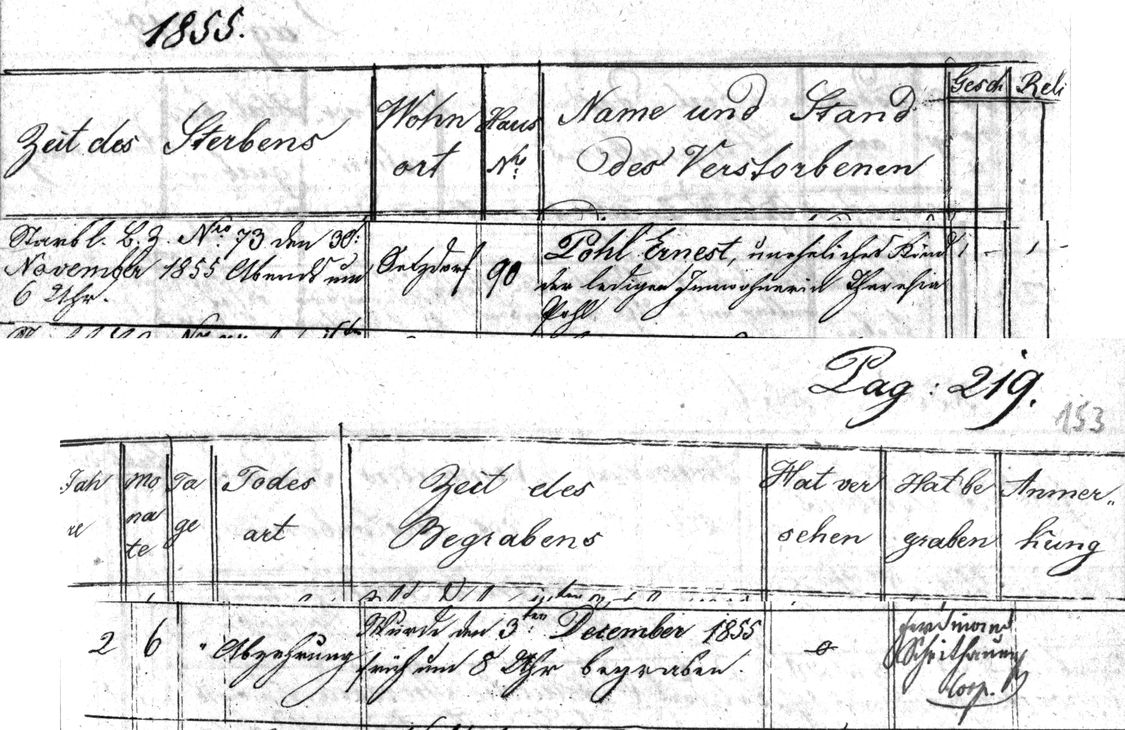 1855.
Zeit des Sterbens
Wohn
ort
Haus
Nro
Name und Stand
des Verstorbenen
Gesch
Reli
Starb l. B. Z. Nro 73 den 30t:
November 1855 Abends um
6 Uhr.
Setzdorf
90
Pohl Ernest, uneheliches Kind
der ledigen Inwohnerin Theresia
Pohl
1 -
1
Pag: 219.
153
Jah
re
Mo
na
te
Ta
ge
Todes
art
Zeit des
Begrabens
Hat ver
sehen
Hat be
graben
Anmer„
kung
2
6
"
Abzehrung
Wurde den 3ten: Dezember 1855
früh um 8 Uhr begraben.
Ferdinand
Scheithauer
Coop.